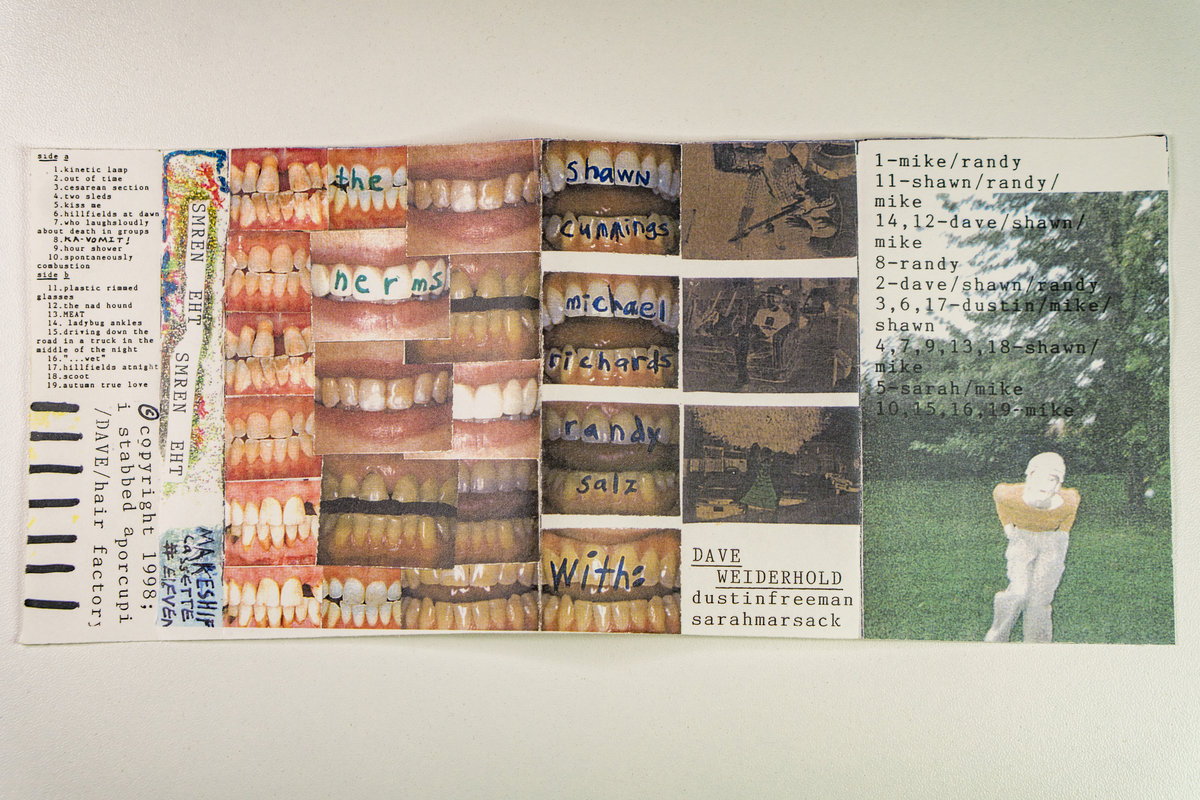 side a
1.kinetic lamp
2.out of time
3.cesarean section
4.two sleds
5.kiss me
6.hillfields at dawn
7.who laughsloudly
about death in groups
8.KA-VOMIT!
9.hour shower
10.spontaneously
combustion
side b
11.plastic rimmed
glasses
12.the nad hound
13.MEAT
14. ladybug ankles
15.driving down the
road in a truck in the
middle of the night
16."...wet"
17.hillfields atnight
18.scoot
19.autumn true love
©copyright 1998;
i stabbed aporcupi
/DAVE/hair factory
SMREN EHT SMREN EHT
MAKESHIF
CASSETTE
#ELEVEN
the
nerms
shawn
cummings
michael
richards
randy
salz
With:
DAVE
WEIDERHOLD
dustinfreeman
sarahmarsack
1-mike/randy
11-shawn/randy/
mike
14,12-dave/shawn/
mike
8-randy
2-dave/shawn/randy
3,6,17-dustin/mike/
shawn
4,7,9,13,18-shawn/
mike
5-sarah/mike
10,15,16,19-mike